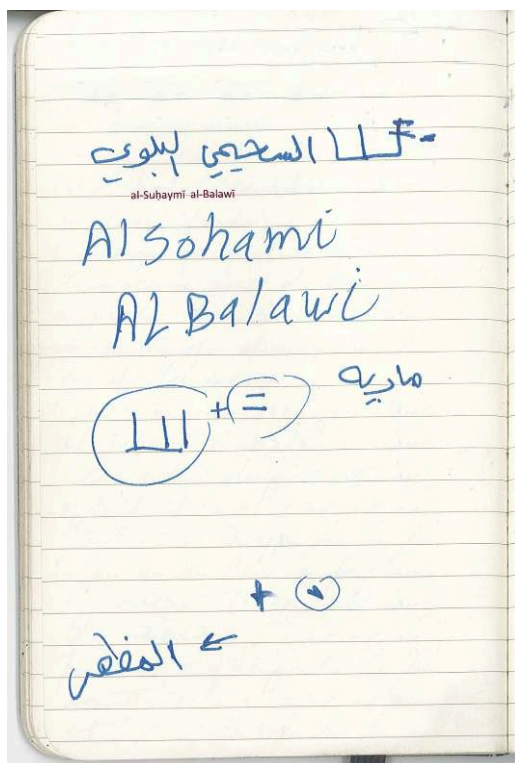 السحيمي البلوي
al-Suḥaymī al-Balawī
Al Sohami
AL Balawi
ماديه
+ =
+
←